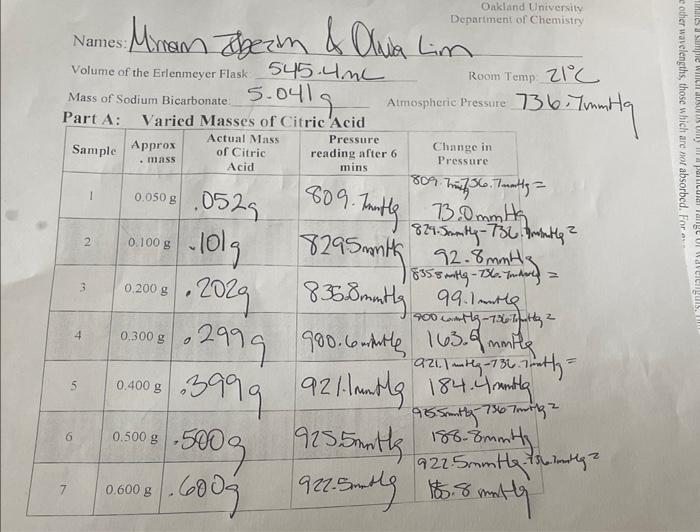 Oakland University
Department of Chemistry
Names: & Olivia Lim
Volume of the Erlenmeyer Flask 545.4mL Room Temp: 21°C
Mass of Sodium Bicarbonate: 5.041g Atmospheric Pressure 736.7mmHg
Part A: Varied Masses of Citric Acid
Sample Approx . mass Actual Mass of Citric Acid Pressure reading after 6 mins Change in Pressure
809.7mmHg-736.7mmHg =
1 0.050 g .052g 809.7mmHg 73.0mmHg
829.5mmHg-736.7mmHg =
2 0.100 g .101g 829.5mmHg 92.8mmHg
835.8mmHg-736.7mmHg =
3 0.200 g .202g 835.8mmHg 99.1mmHg
900.6mmHg-736.7mmHg =
4 0.300 g .299g 900.6mmHg 163.9mmHg
921.1mmHg-736.7mmHg =
5 0.400 g .399g 921.1mmHg 184.4mmHg
925.5mmHg-736.7mmHg =
6 0.500 g .500g 925.5mmHg 188.8mmHg
922.5mmHg-736.7mmHg =
7 0.600 g .600g 922.5mmHg 185.8mmHg
other wavelengths, those which are not absorbed. For